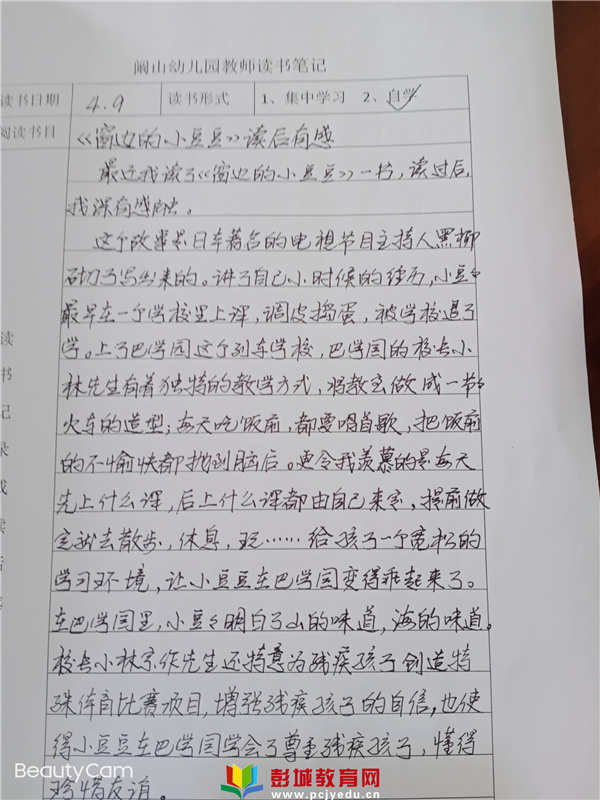 阚山幼儿园教师读书笔记
读书日期 4.9 读书形式 1、集中学习 2、自学
阅读书目
《窗边的小豆豆》读后有感
最近我读了《窗边的小豆豆》一书，读过后
我深有感触。
这个故事是日本著名的电视节目主持人黑柳
写出来的。讲了自己小时候的经历，小豆々
最早在一个学校里上课，调皮捣蛋，被学校退了
学。上了巴学园这个列车学校，巴学园的校长小
林先生有着独特的教学方式，将教室做成一节々
火车的造型；每天吃饭前，都要唱首歌，把饭前
的不愉快都抛到脑后。更令我羡慕的是每天
先上什么课，后上什么课都由自己来定，提前做
完就去散步，休息，玩……给孩子一个宽松的
学习环境，让小豆豆在巴学园变得乖起来了。
在巴学园里，小豆々明白了山的味道，海的味道。
校长小林宗作先生还特意为残疾孩子创造特
殊体育比赛项目，增强残疾孩子的自信，也使
得小豆豆在巴学园学会了尊重残疾孩子，懂得
珍惜友谊。
读
书
记
录
或
读
后
BeautyCam
彭城教育网
www.pcjyedu.cn